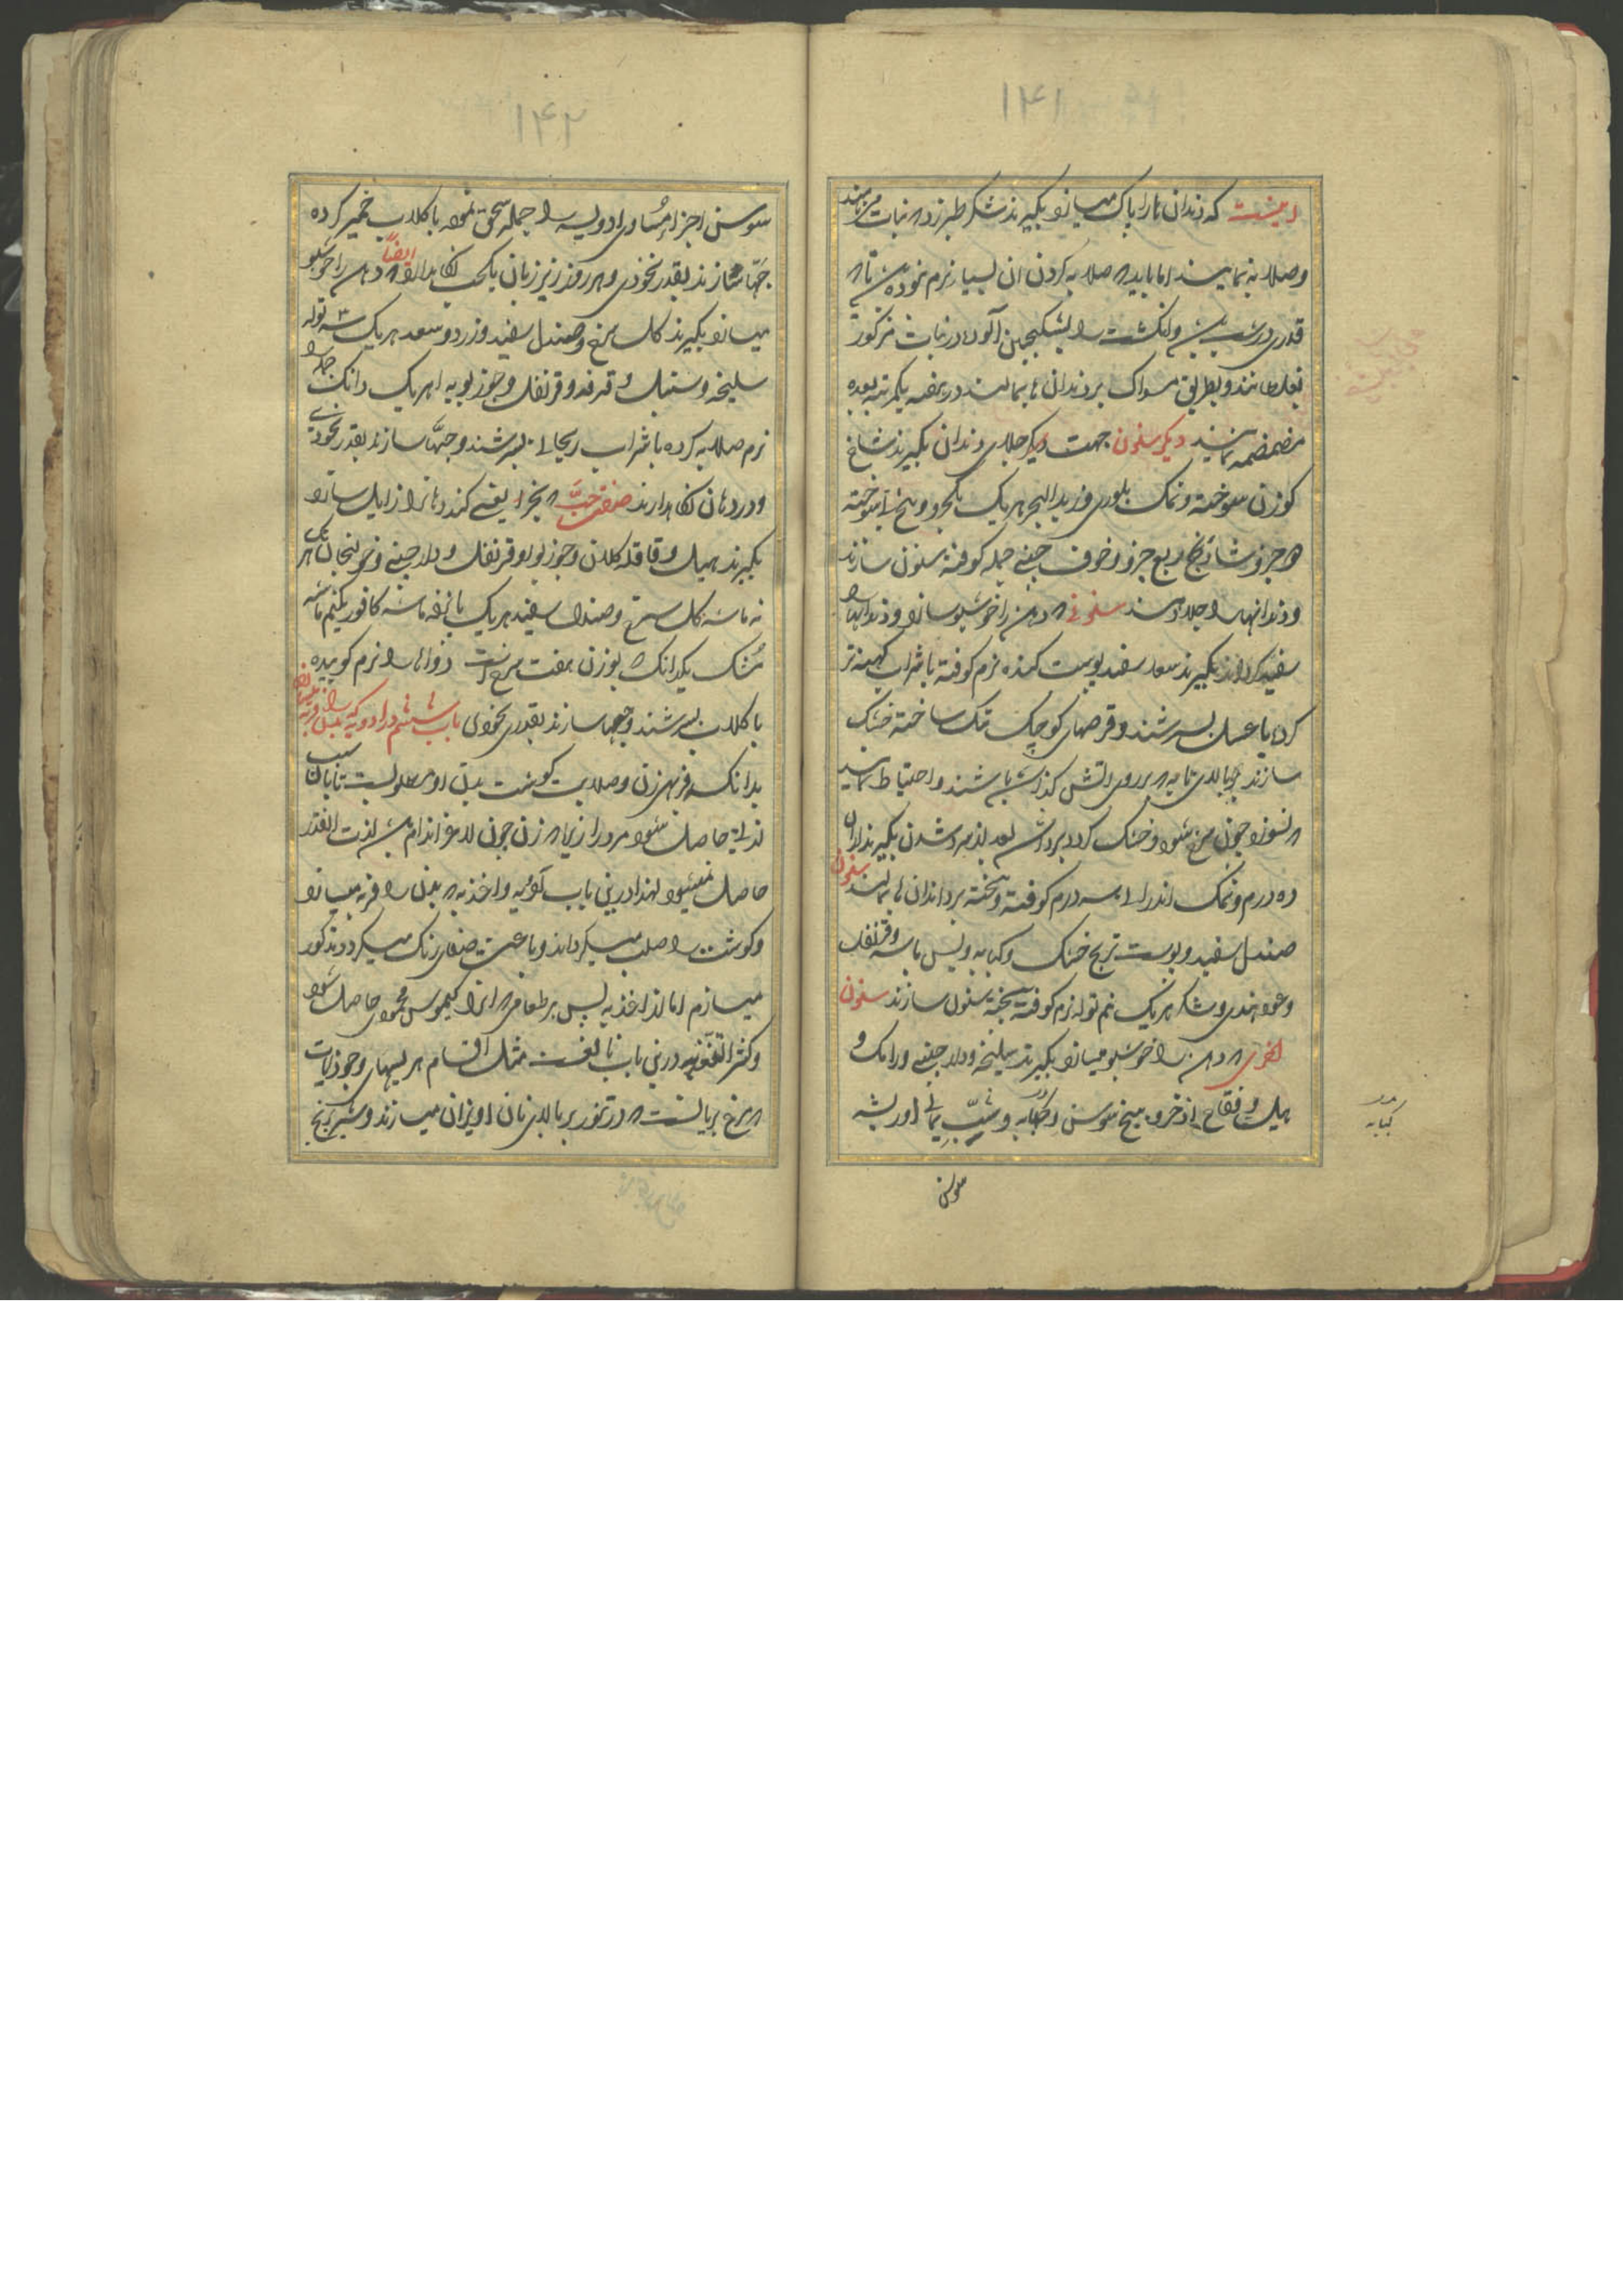 ۱۴۱
اینست که دندان را پاک میسازد بگیرند شکر طبرزد و نبات
وصلایه نمایند اما باید که صلایه کردن آن بسیار نرم نبوده
قدری درشت باشد و انگشت را بسکنجبین آلوده در نبات مذکور
بغلطانند و بطریق مسواک بر دندان ها بمالند در هفته یکمرتبه بعده
مضمضه نمایند دیگر سنون جهت جلای دندان بگیرند شاخ
گوزن سوخته و نمک بلوری و زبد البحر هریک یکجزو و بیخ نی سوخته
جزو شادنج ربع جزو و خزف چینی جمله کوفته سنون سازند
و دندانها را جلا دهند سنونی که دهن را خوشبو سازد و دندانها را
سفید گرداند بگیرند سعد سفید پوست کنده نرم کوفته با شراب
کرده یا عسل بسرشند و قرصهای کوچک تنک ساخته خشک
سازند بر بالای تابه که بر روی آتش گذاشته باشند و احتیاط نمایند
که نسوزد چون سرخ شود و خشک گردد بردارند بعد از سرد شدن بگیرند از آن
ده درم و نمک اندرانی سه درم کوفته و بیخته بر دندان ها بمالند سنون
صندل سفید و پوست ترنج خشک و کبابه و قرنفل
و عود هندی و شکر هریک نیم توله نرم کوفته بیخته سنون سازند سنون
اخری که دهن را خوشبو میسازد بگیرند سلیخه و دارچینی و رامک و
هیل و فقاح اذخر و بیخ سوسن و کبابه و شب یمانی
کبابه
سوسن
۱۴۲
سوسن اجزا مساوی ادویه را جمله سحق نموده با گلاب خمیر کرده
حبها سازند بقدر نخودی و هر روز زیر زبان یک حب نگاهدارند ایضاً که دهن را خوشبو
میسازد بگیرند گل سرخ و صندل سفید و زرد و سعد هریک سه توله
سلیخه و سنبل و قرفه و قرنفل و جوز بویه هریک دانک جمله را
نرم صلایه کرده با شراب ریحانی بسرشند و حبها سازند بقدر نخودی
و در دهان نگاهدارند صفت حبی که بخر یعنی گند دهانرا زایل سازد
بگیرند هیل و قاقله کلان و جوز بویه و قرنفل و دارچینی و خولنجان هر یک
نه ماشه گل سرخ و صندل سفید هریک ماشه کافور یکنیم ماشه
مشک یکدانک بوزن هفت سرخ است دواها را نرم کوبیده
با گلاب بسرشند و حبها سازند بقدر نخودی باب ششم در ادویه که بدن را فربه میسازد
بدانکه فربهی زن و صلابت گوشت بدن او مطلوبست تا بآن سبب
لذت حاصل شود مرد را زیرا که زن چون لاغر اندام باشد لذت آنقدر
حاصل نمیشود لهذا درین باب ادویه و اغذیه که بدن را فربه میسازد
و گوشت را صلب میگرداند و باعث صفای رنگ میگردد مذکور
میسازم اما از اغذیه پس هر طعامی که ازو کیموس محمود حاصل شود
و کثیر التغذیه درین باب نافعست مثل اقسام هریسهای و جوذابات
مرغ بریانست که در تنور بر بالای نان آویزان میسازند و شیر برنج